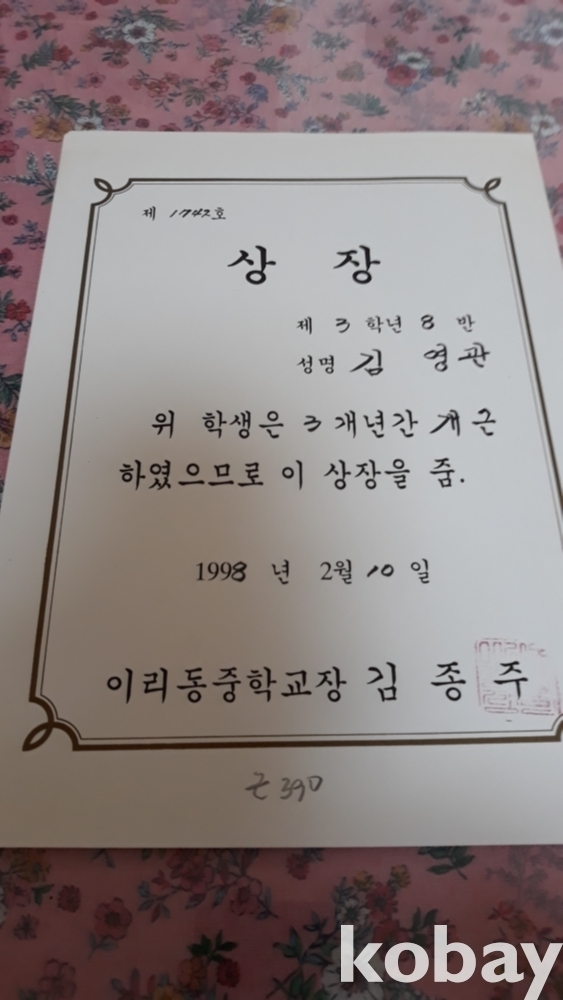 제 1742호
상 장
제 3 학년 8 반
성명 김 영관
위 학생은 3 개년간 개근
하였으므로 이 상장을 줌.
1998 년 2월 10 일
이리동중학교장 김 종 주
390
kobay